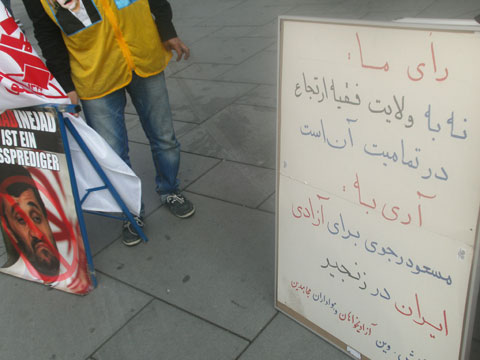 INEJAD
IST EIN
SSPREDIGER
رأی ما:
نه به ولایت فقیه ارتجاع
در تمامیت آن است
آری به:
مسعود رجوی برای آزادی
ایران در زنجیر
آزادیخواهان و هواداران مجاهدین
وین